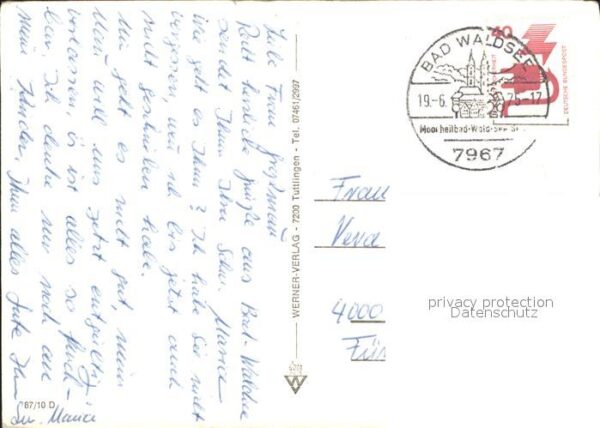 Liebe Frau
Recht herzliche Grüße aus Bad-Waldsee
sendet Ihnen Ihre Schw. Maria
Wie geht es Ihnen? Ich habe Sie nicht
vergessen, wenn ich bis jetzt auch
nicht geschrieben habe.
Mir geht es nicht gut, mein
Mann will uns jetzt entgültig
verlassen, es ist alles so furcht-
bar. Ich denke nur noch an
meine Kinder. Ihnen alles Gute Ihre
Schw. Maria
87/10 D
WERNER-VERLAG - 7200 Tuttlingen - Tel. 07461/2997
W
40
DEUTSCHE BUNDESPOST
BAD WALDSEE
19.-6.
75-17
Moorheilbad-Waldsee
7967
Frau
Vera
4000
privacy protection
Datenschutz